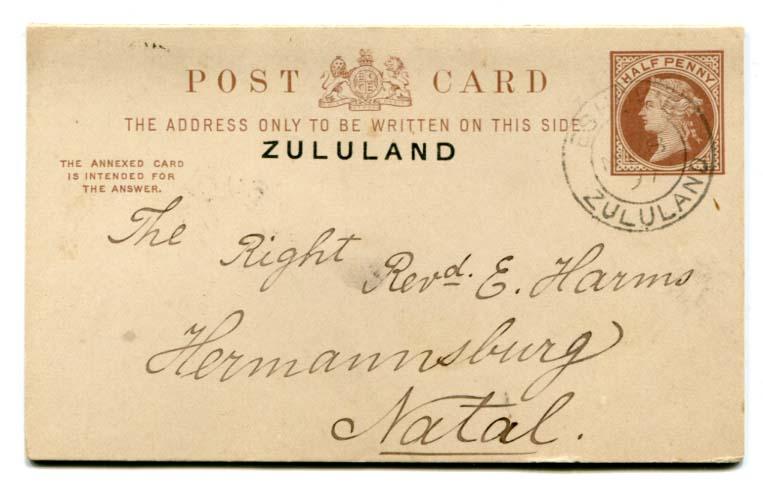 HALF PENNY
POST CARD
THE ADDRESS ONLY TO BE WRITTEN ON THIS SIDE.
ZULULAND
THE ANNEXED CARD
IS INTENDED FOR
THE ANSWER.
ZULULAND
The Right Revd. E. Harms
Hermannsburg
Natal.